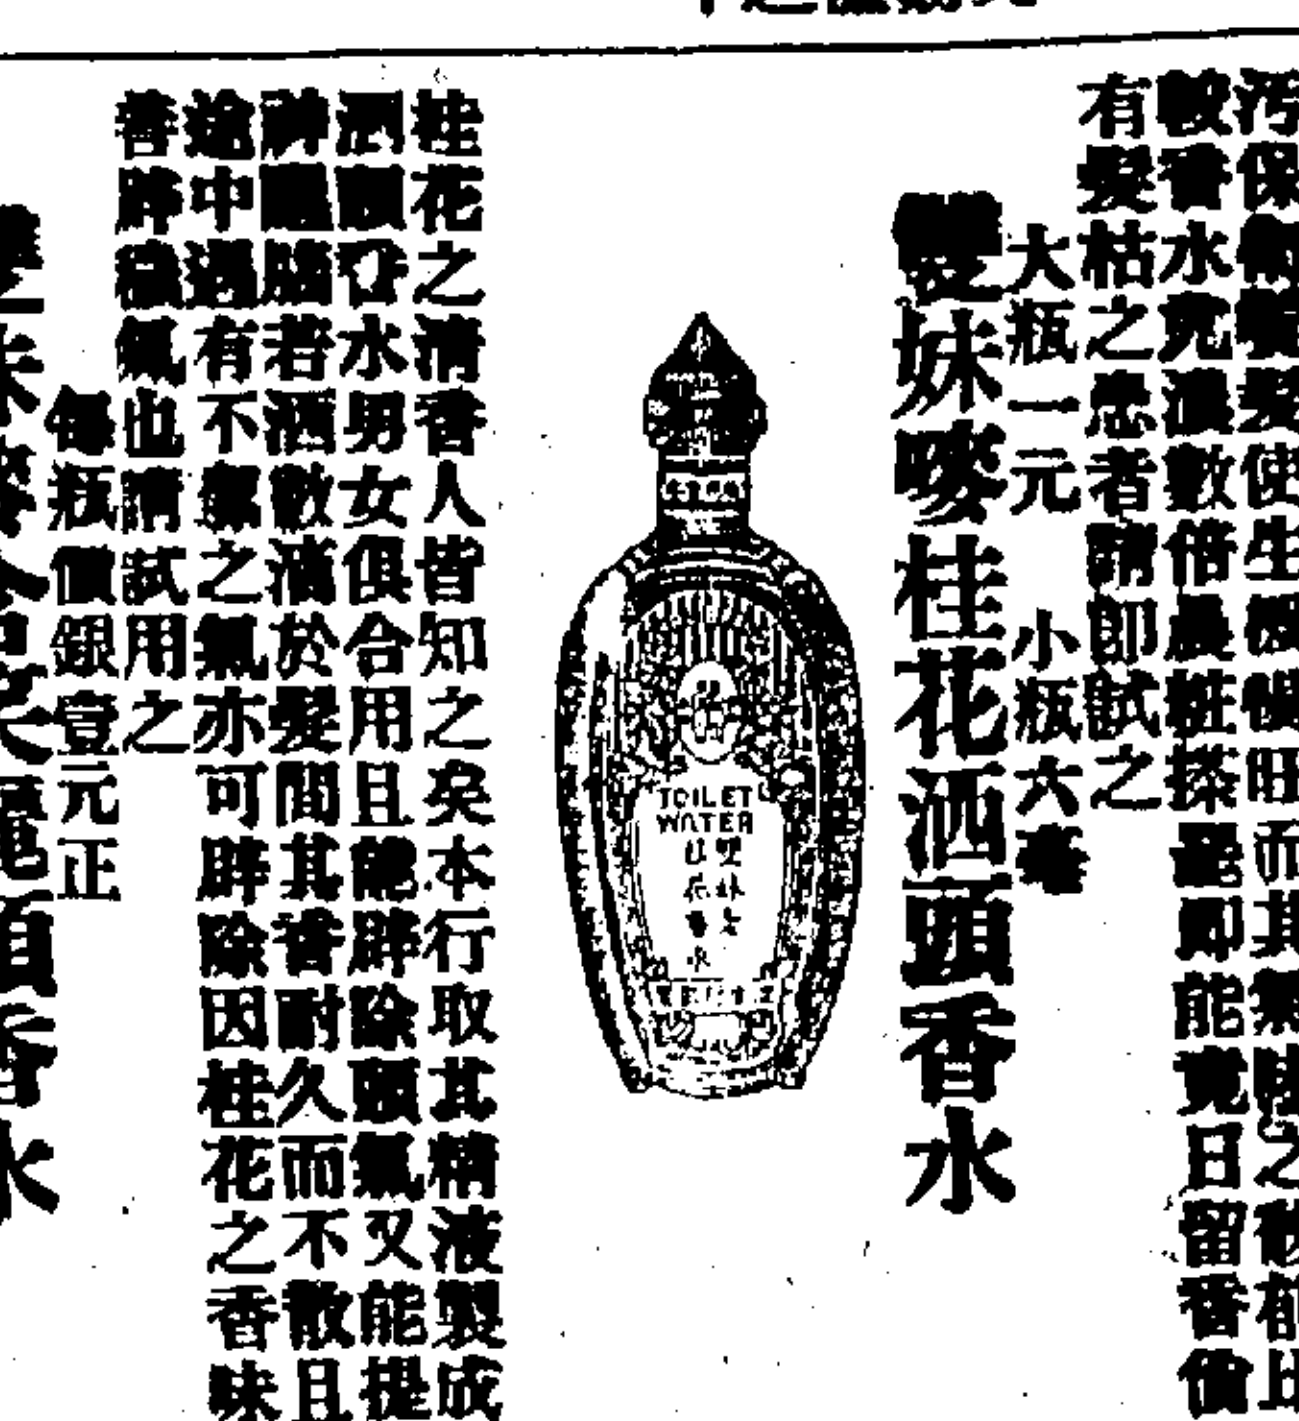 汚保衛頭髮使生機暢旺而其氣味之馥郁比
較香水尤濃數倍晨粧搽罷即能竟日留香價
有髮枯之患者請即試之
大瓶一元 小瓶六毫
雙妹嚜桂花洒頭香水
TOILET
WATER
雙妹老
桂花香水
桂花之清香人皆知之矣本行取其精液製成
洒頭香水男女俱合用且能辟除頭氣又能提
神醒腦若洒數滴於髮間其香耐久而不散且
途中遇有不潔之氣亦可辟除因桂花之香味
善辟穢氣也請試用之
每瓶價銀壹元正